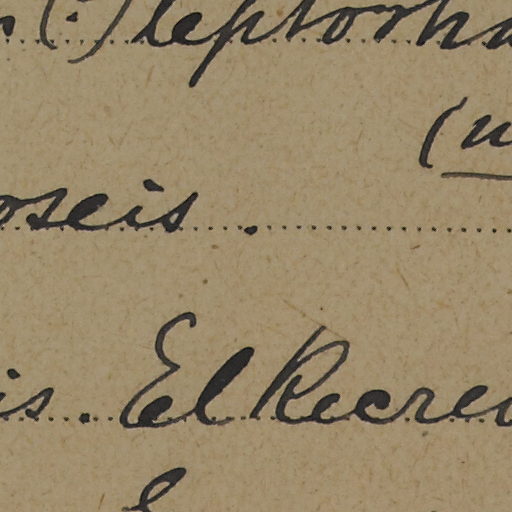 (?) leptorh
(n
oseis.
is. El Recre